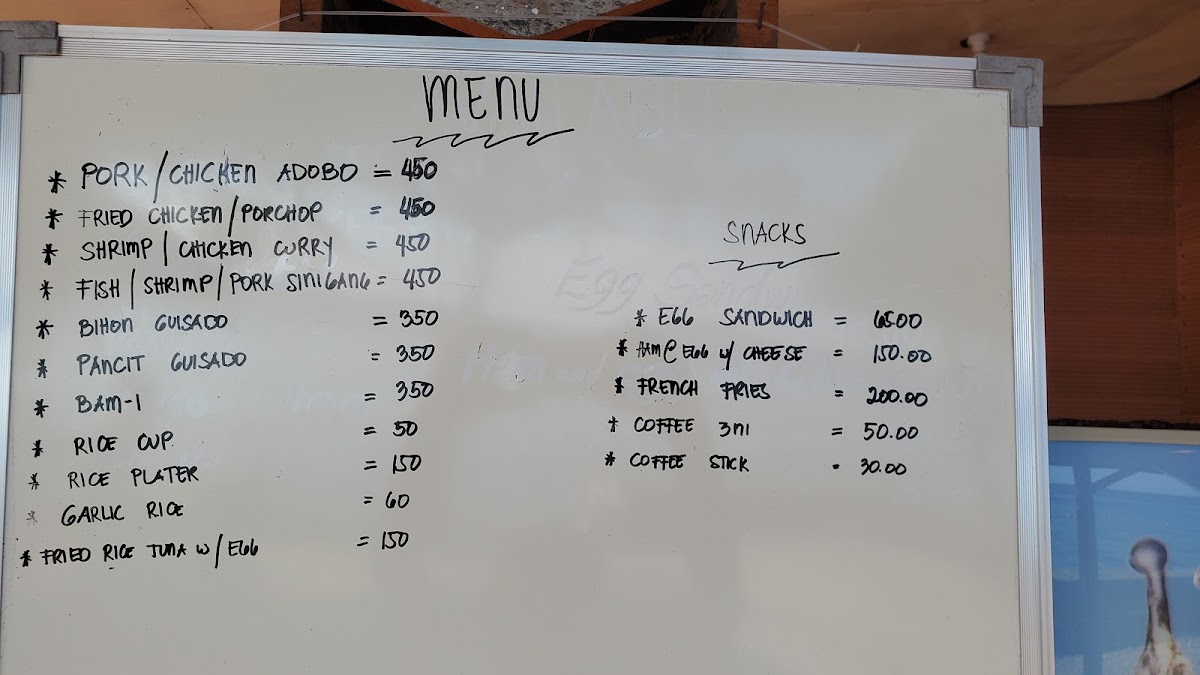 MENU
* PORK/CHICKEN ADOBO = 450
* FRIED CHICKEN/PORCHOP = 450
* SHRIMP/CHICKEN CURRY = 450
* FISH/SHRIMP/PORK SINIGANG = 450
* BIHON GUISADO = 350
* PANCIT GUISADO = 350
* BAM-I = 350
* RICE CUP = 50
* RICE PLATER = 150
* GARLIC RICE = 60
* FRIED RICE TUNA W/EGG = 150
SNACKS
* EGG SANDWICH = 65.00
* HAM @ EGG W/ CHEESE = 150.00
* FRENCH FRIES = 200.00
* COFFEE 3N1 = 50.00
* COFFEE STICK = 30.00